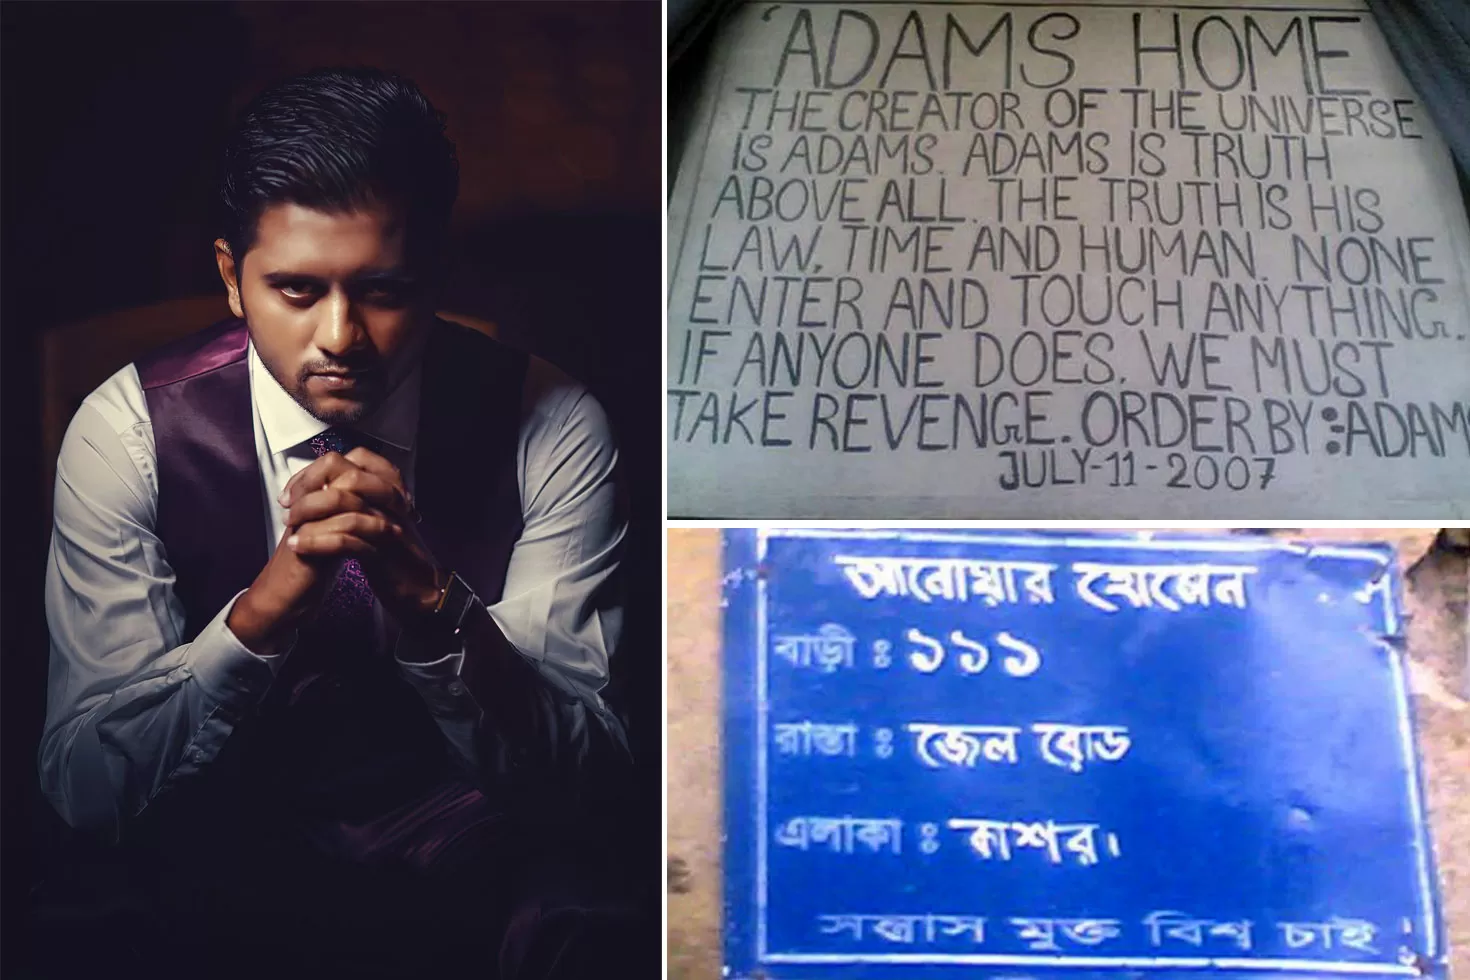 'ADAMS HOME
THE CREATOR OF THE UNIVERSE
IS ADAMS. ADAMS IS TRUTH
ABOVE ALL. THE TRUTH IS HIS
LAW, TIME AND HUMAN. NONE
ENTER AND TOUCH ANYTHING.
IF ANYONE DOES. WE MUST
TAKE REVENGE. ORDER BY : ADAM
JULY-11-2007
আনোয়ার হোসেন
বাড়ী : ১১১
রাস্তা : জেল রোড
এলাকা : কাশর।
সন্ত্রাস মুক্ত বিশ্ব চাই